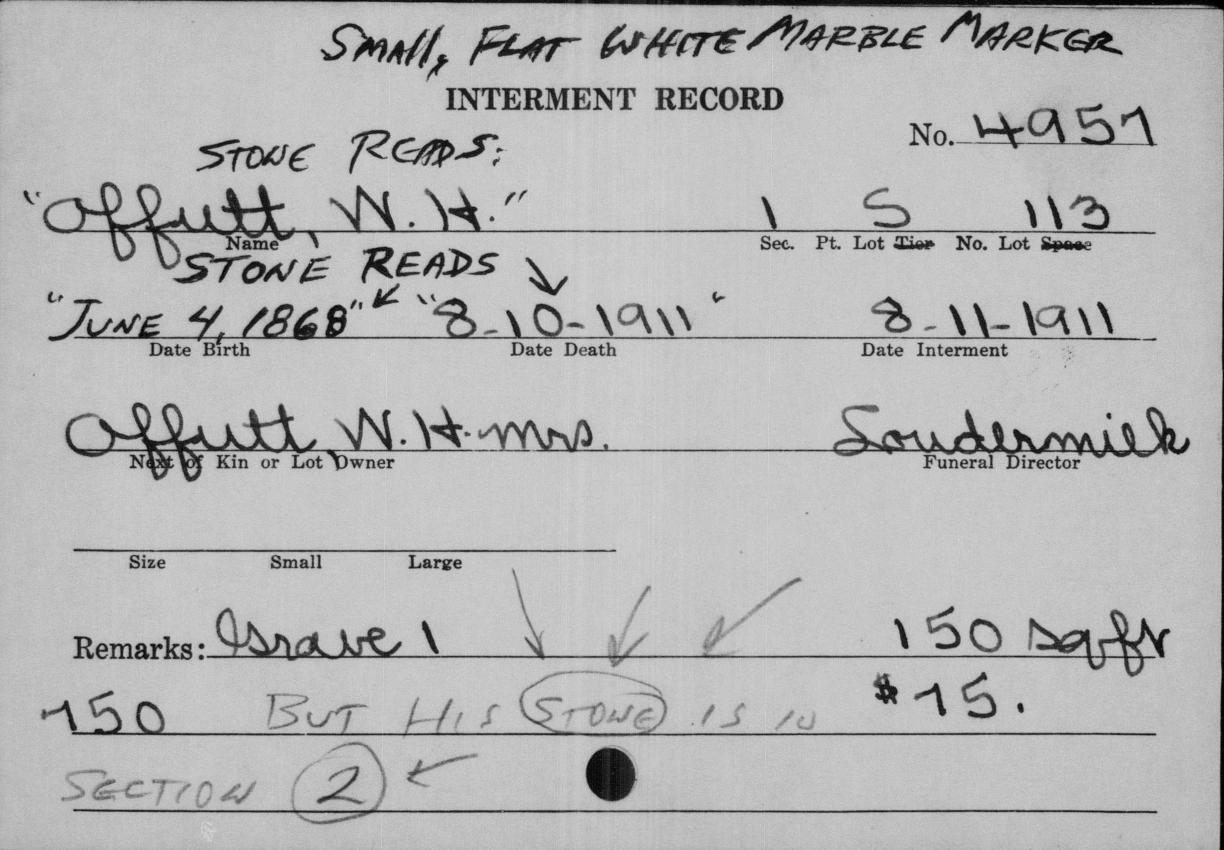 Small, Flat White Marble Marker
INTERMENT RECORD
No. 4957
Stone Reads:
"Offutt, W. H." 1 S 113
Name Sec. Pt. Lot Tier No. Lot Space
Stone Reads
"June 4, 1868" "8-10-1911" 8-11-1911
Date Birth Date Death Date Interment
Offutt, W. H. Mrs. Loudermilk
Next of Kin or Lot Owner Funeral Director
Size Small Large
Remarks: Grave 1 150 sq ft
750 But His Stone is in $75.
Section 2